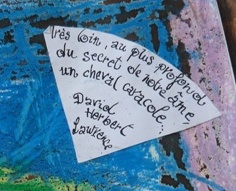 Très loin, au plus profond
du secret de notre âme
un cheval caracole...
David
Herbert
Lawrence